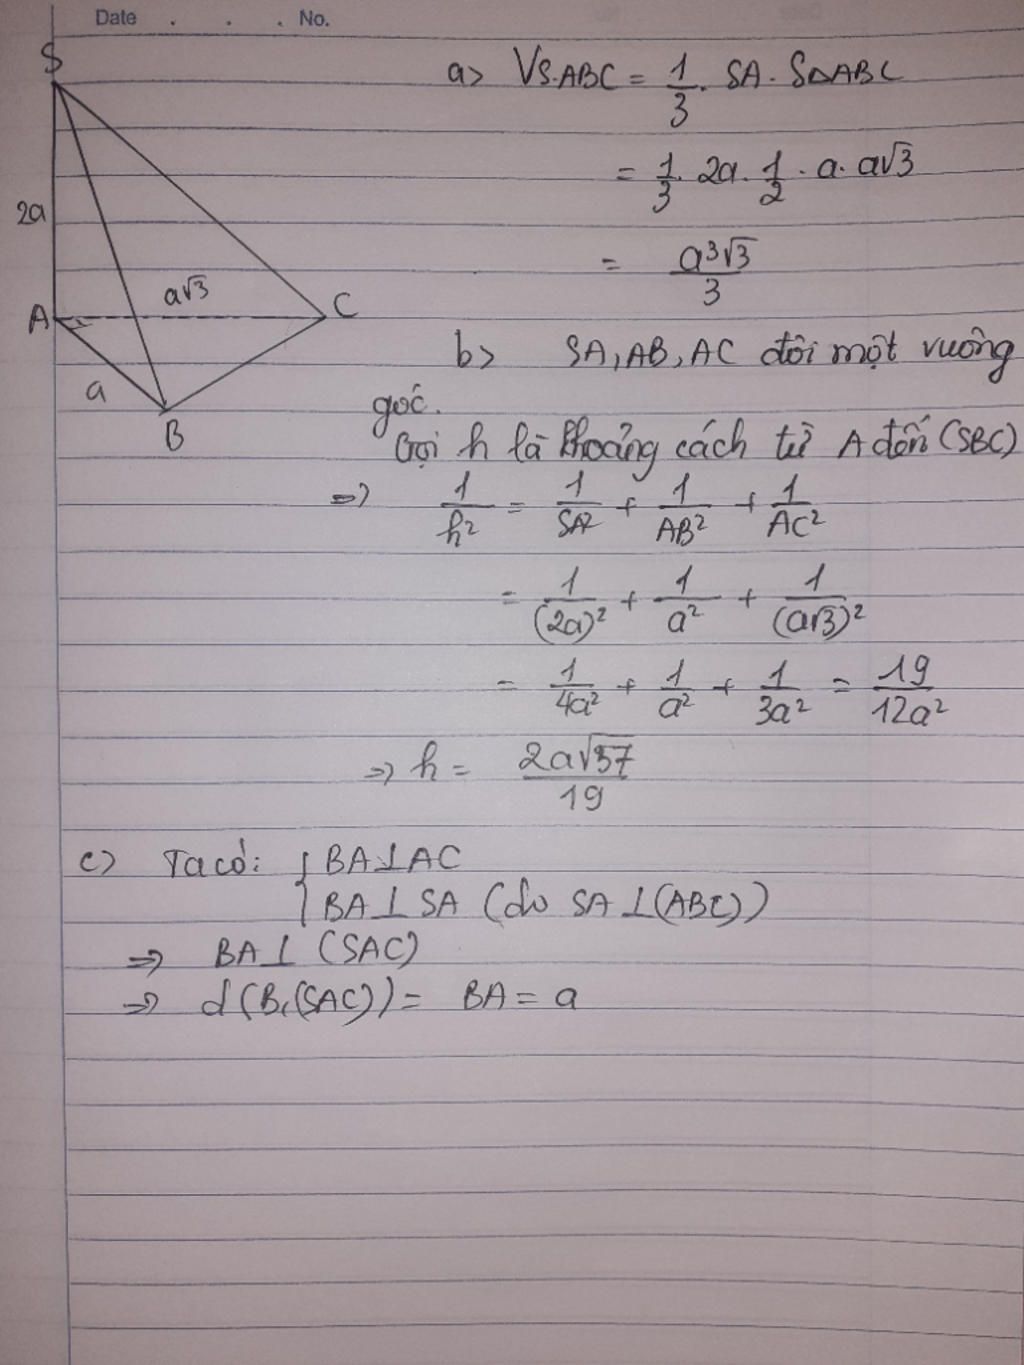 Date . . . No.
S
2a
a√3
A
C
a
B
a> VS.ABC = 1/3 . SA . SΔABC
= 1/3 . 2a . 1/2 . a . a√3
= a³√3/3
b> SA, AB, AC đôi một vuông
góc.
Gọi h là khoảng cách từ A đến (SBC)
=> 1/h² = 1/SA² + 1/AB² + 1/AC²
= 1/(2a)² + 1/a² + 1/(a√3)²
= 1/4a² + 1/a² + 1/3a² = 19/12a²
=> h = 2a√57/19
c) Ta có: { BA⊥AC
BA⊥ SA (do SA ⊥(ABC))
=> BA⊥ (SAC)
=> d(B,(SAC)) = BA = a